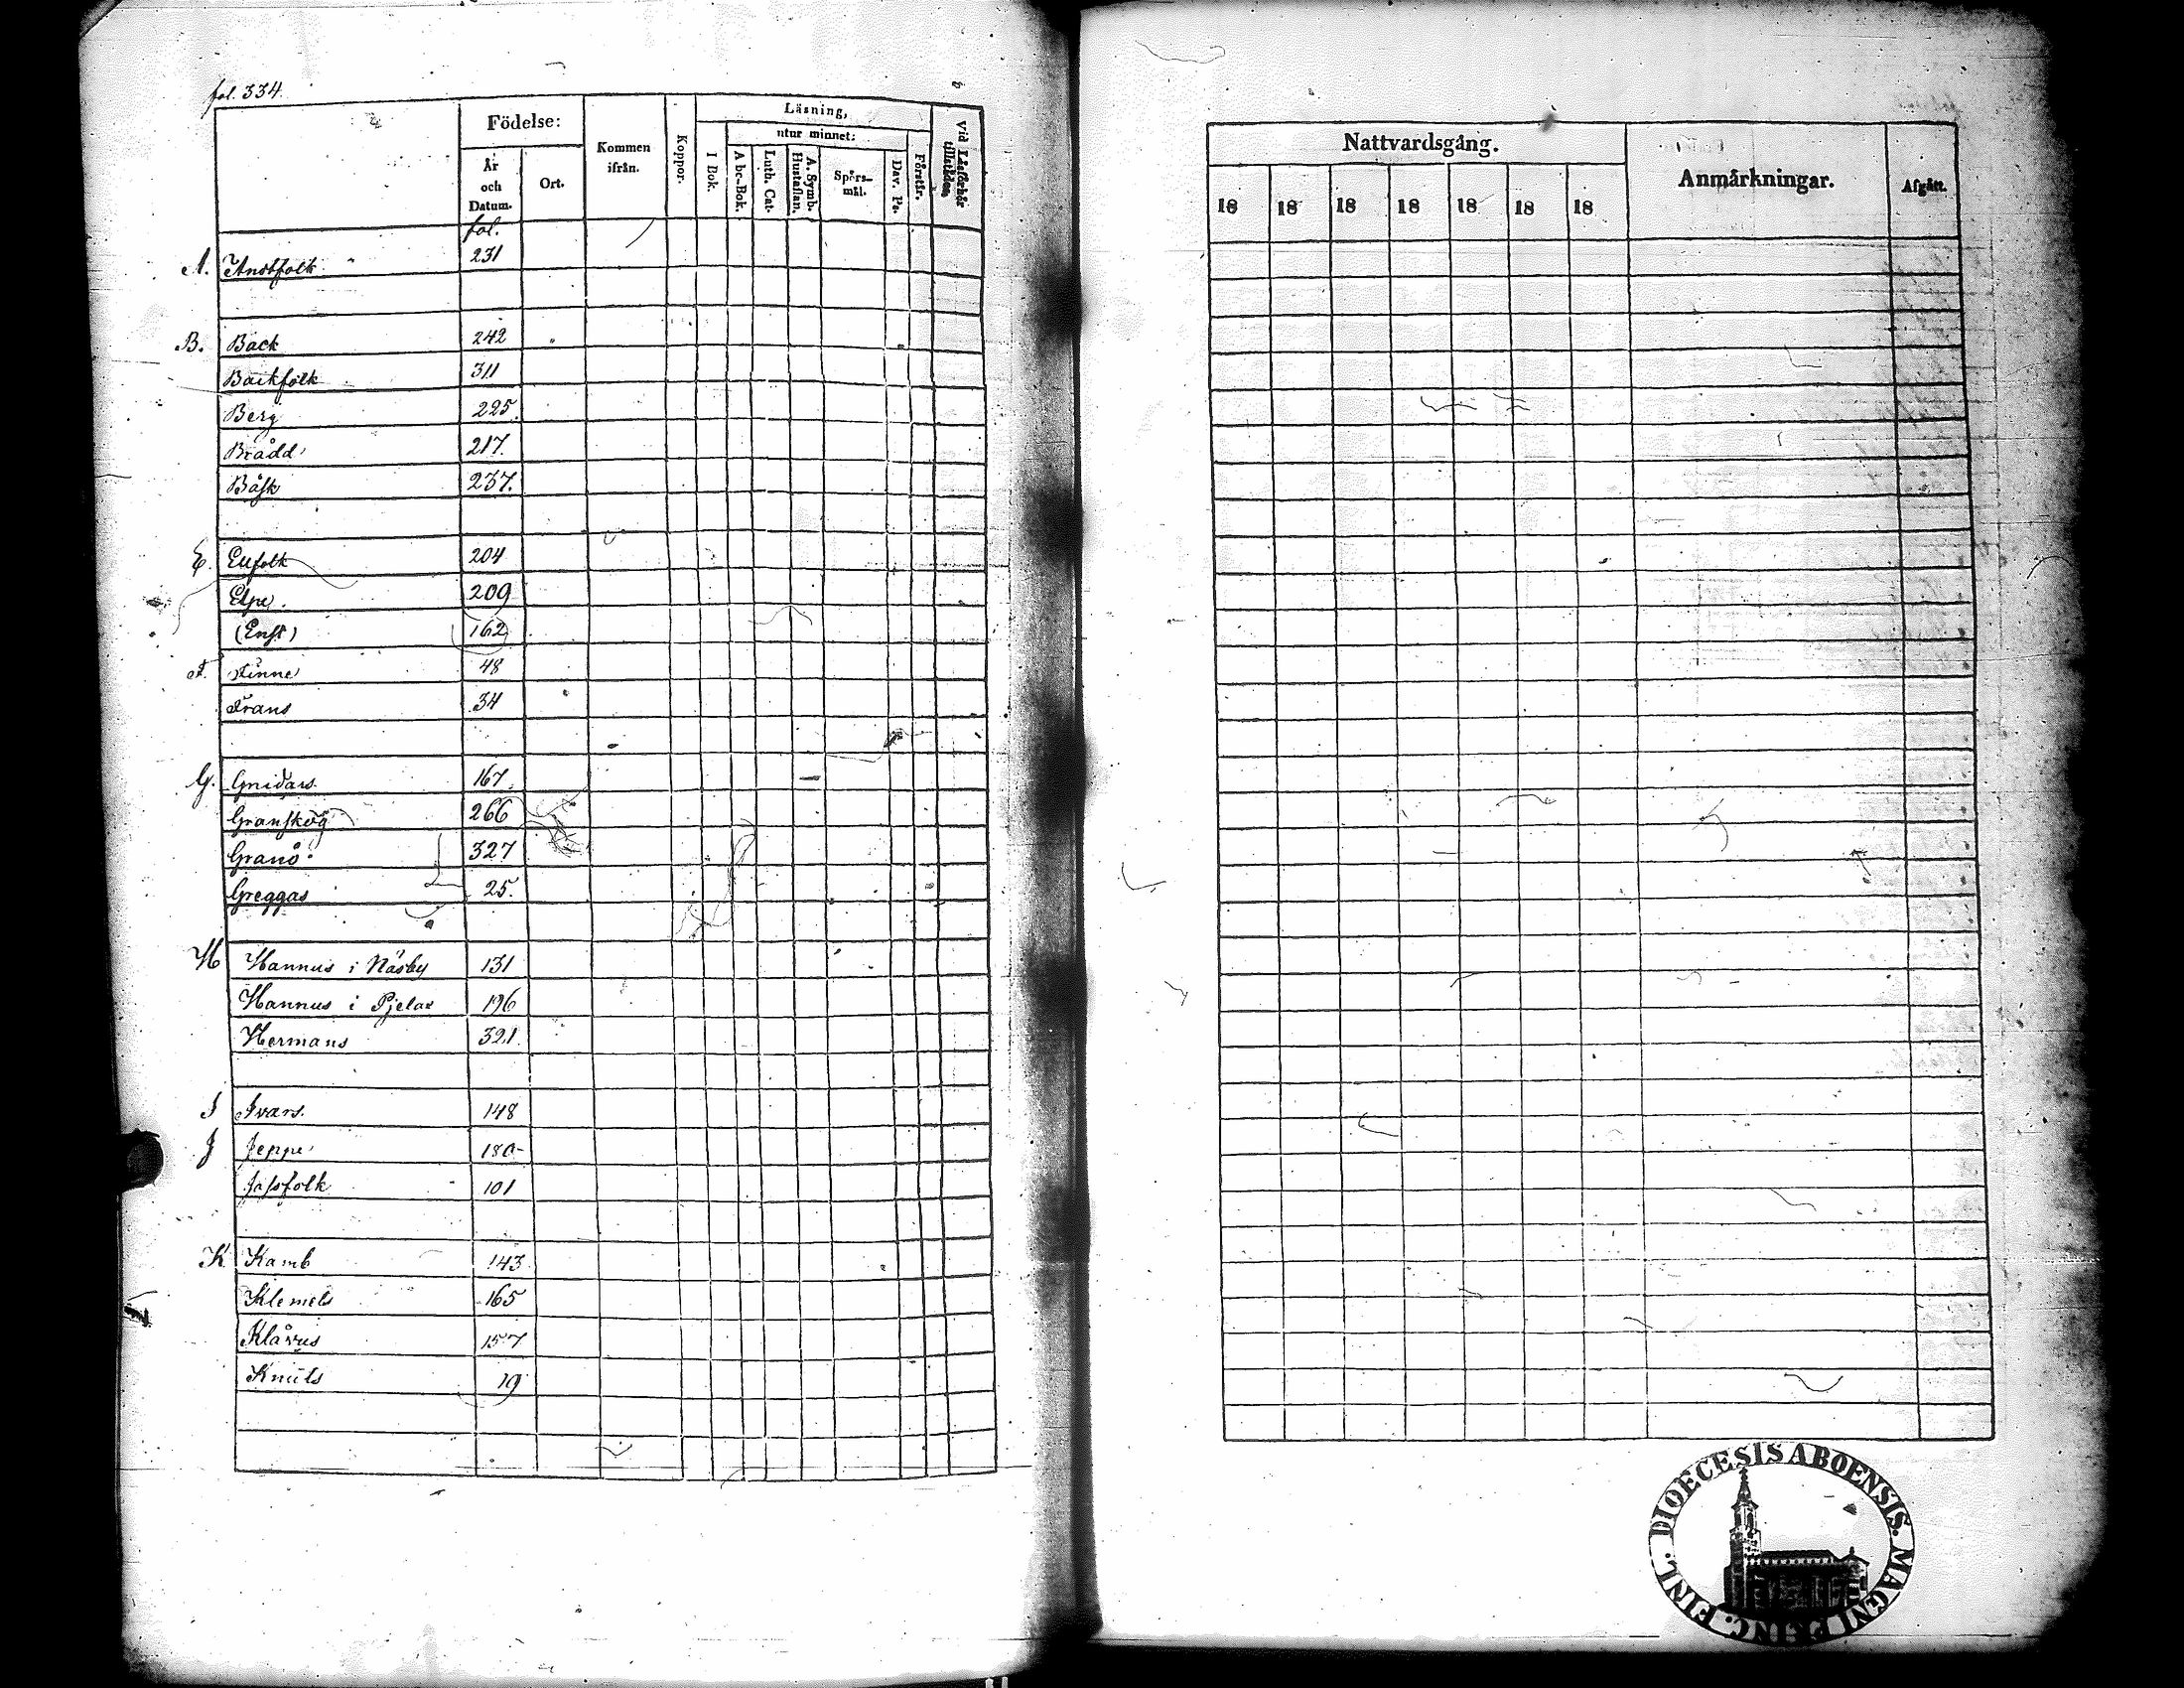 fol. 334.
Födelse:
Kommen ifrån.
Koppor.
Läsning,
utur minnet:
Vid Läsförhör tillstådes
År och Datum.
Ort.
I Bok.
Abc-Bok.
Luth. Cat.
A. Symb. Hustaflan.
Spörs-mål.
Dav. Ps.
Förstår.
fol.
A. Andtfolk 231
B. Back 242
Backfolk 311
Berg 225.
Brådd 217.
Båsk 237.
E. Eufolk 204
Elpe. 209
(Enst) 162
F. Finne 48
Frans 34
G. Gnidars 167.
Granskog 266
Granö 327
Greggas 25.
H Hannus i Näsby 131
Hannus i Pjelax 196
Hermans 321.
I Ivars. 148
J Jeppe 180
Jossfolk 101
K Kamb 143
Klemets 165
Klåvus 157
Knuts 19
Nattvardsgång.
Anmärkningar.
Afgått.
18 18 18 18 18 18 18
DIOECESIS ABOENSIS. MAGNI PRINC. FINL.